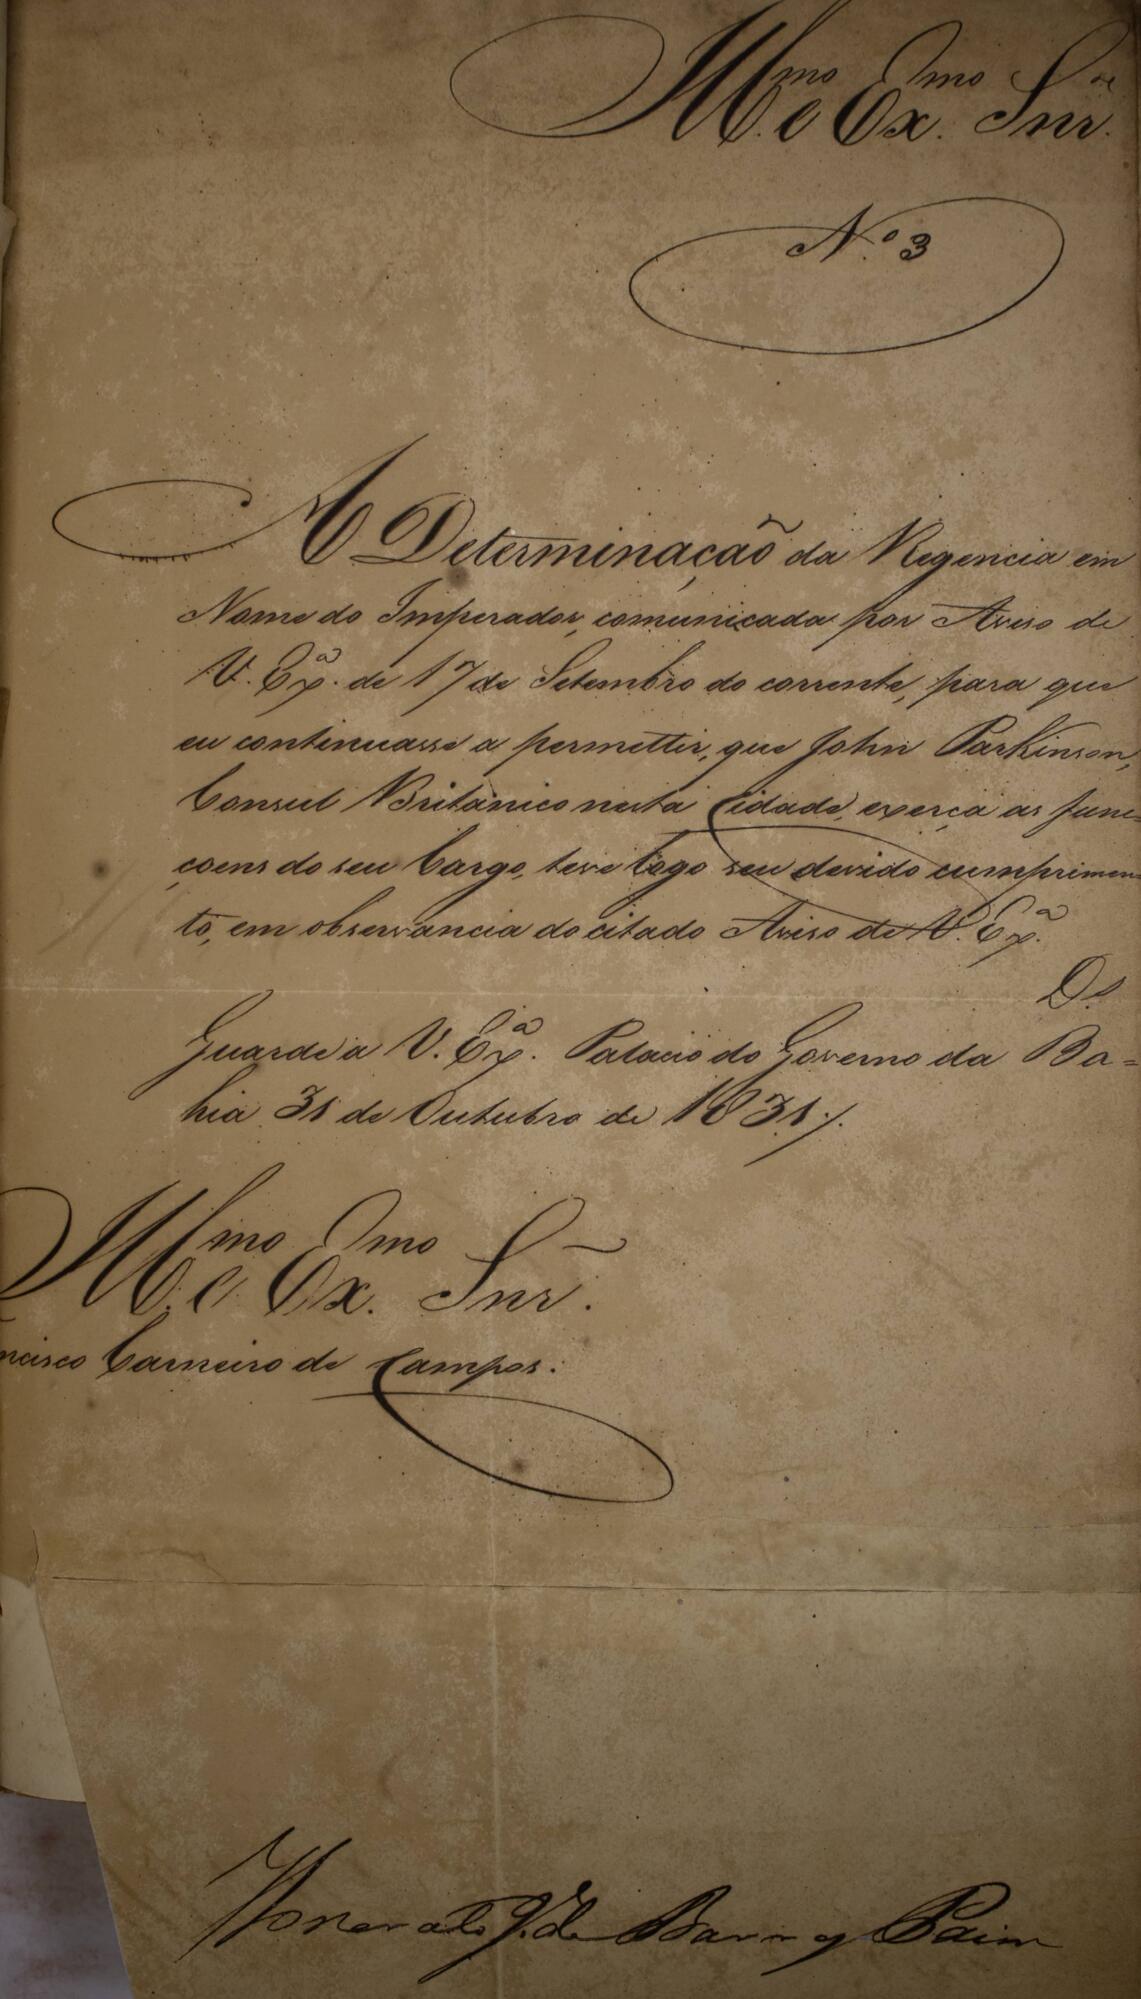 Ill.mo e Ex.mo Snr.
N.º 3
A Determinaçaõ da Regencia em
Nome do Imperador, comunicada por Aviso de
V. Ex.ª de 17 de Setembro do corrente, para que
eu continuasse a permettir, que John Parkinson,
Consul Britanico nesta Cidade, exerça as func=
çoens do seu Cargo, teve logo seu devido cumprimen=
to, em observancia do citado Aviso de V. Ex.ª
D.s
Guarde a V. Ex.ª Palacio do Governo da Ba=
hia 31 de Outubro de 1831./.
Ill.mo e Ex.mo Snr.
ncisco Carneiro de Campos.
Honorato J. de Barros Paim